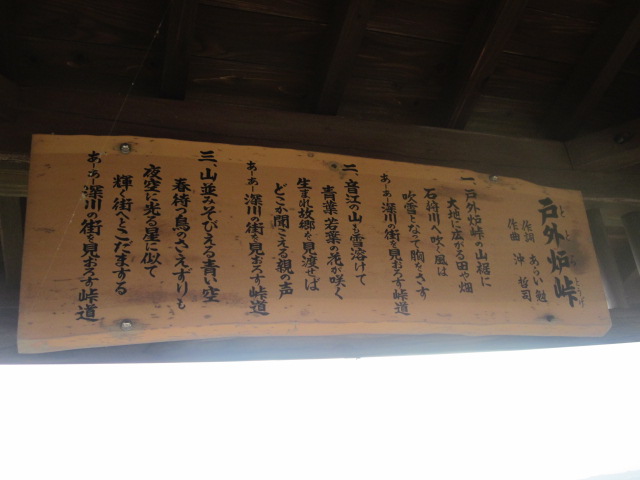 戸外炉峠
ととろとうげ
作詞 あらい 魁
作曲 沖 哲司
一、戸外炉峠の山裾に
大地に広がる田や畑
石狩川へ吹く風は
吹雪となって胸をさす
あーあー深川の街を見おろす峠道
二、音江の山も雪溶けて
青葉若葉の花が咲く
生まれ故郷を見渡せば
どこか聞こえる親の声
あーあー深川の街を見おろす峠道
三、山並みそびえる青い空
春待つ鳥のさえずりも
夜空に光る星に似て
輝く街へとこだまする
あーあー深川の街を見おろす峠道